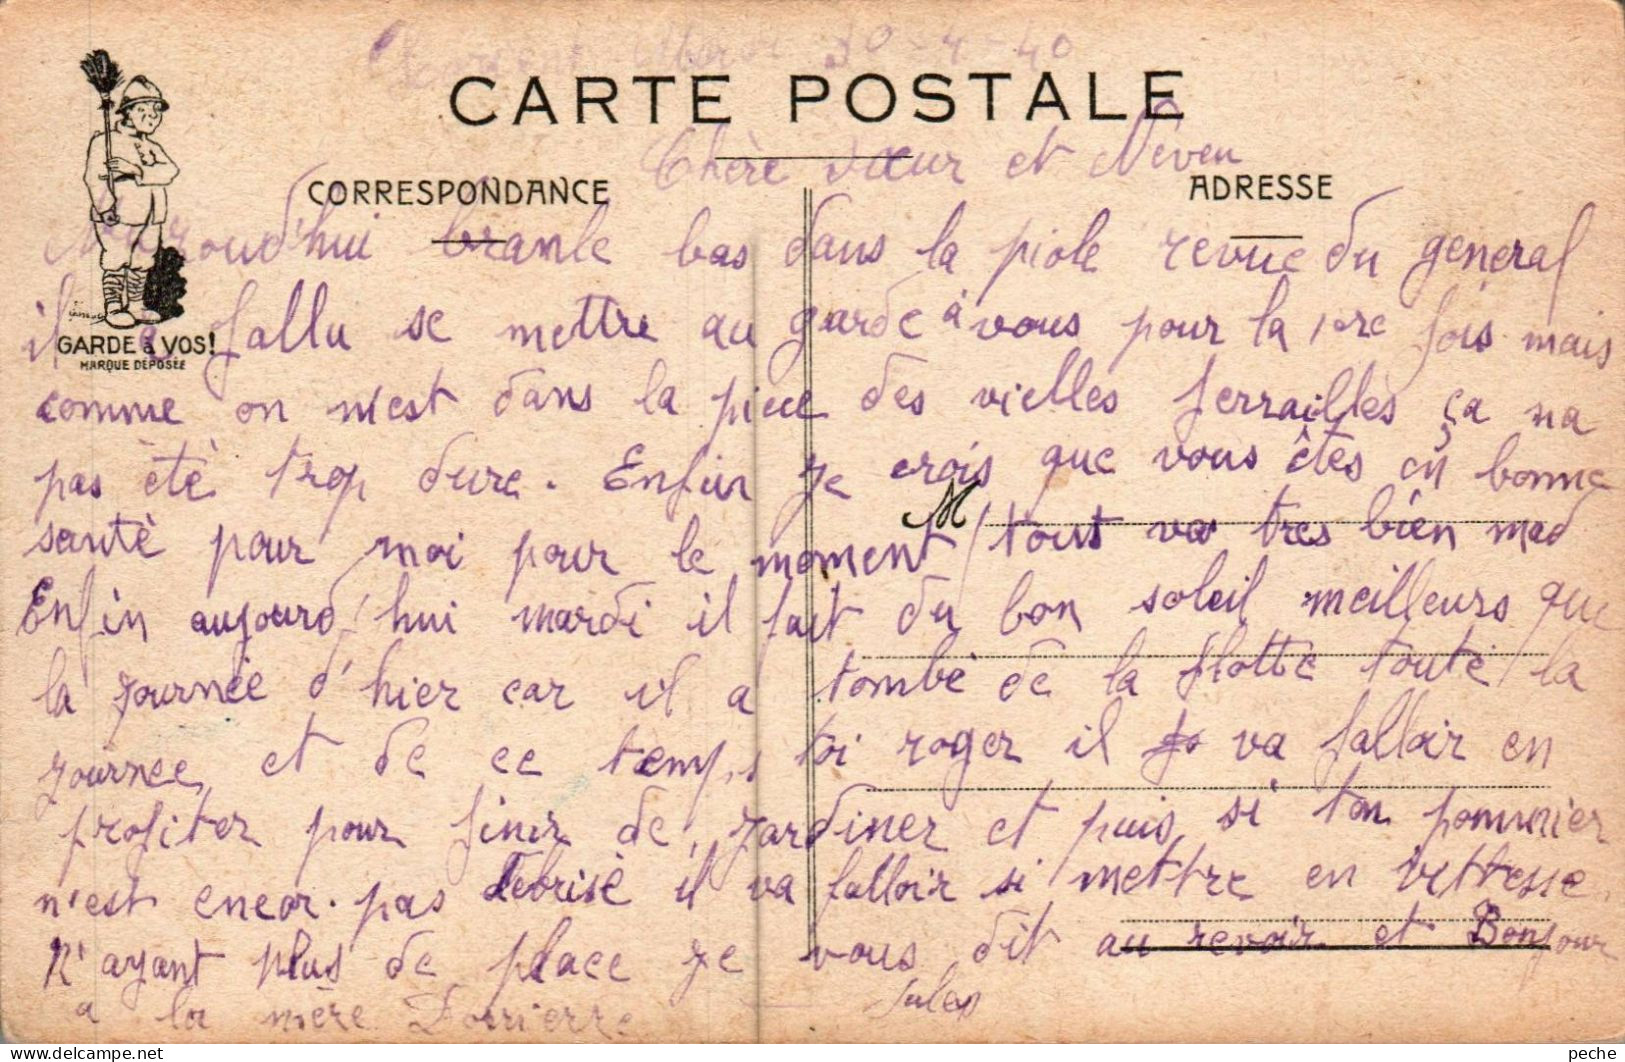 Mardi 30-4-40
CARTE POSTALE
Chère sœur et Neveu
CORRESPONDANCE
ADRESSE
Aujouroud'hui branle bas dans la piole revue du general
il a fallu se mettre au garde à vous pour la 1ere fois mais
GARDE à VOS!
MARQUE DÉPOSÉE
comme on n'est dans la piece des vielles ferrailles ça na
pas étè trop dure. Enfin je crois que vous êtes en bonne
M
santè pour moi pour le moment tout va tres bien mad
Enfin aujourd'hui mardi il fait du bon soleil meilleurs que
la journèe d'hier car il a tombè de la flotte toute la
journee, et de ce temps toi roger il va falloir en
profiter pour finir de jardiner et puis si ton pommier
n'est encor. pas debrisè il va falloir si mettre en vittesse.
N'ayant plus de place je vous dit au revoir et Bonjour
a la mère Jules
peche DELCAMPE